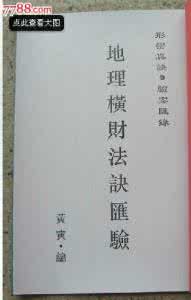 7788.com
点此查看大图
形巒真訣·驗案匯錄
地理橫財法訣匯驗
黃寅·編